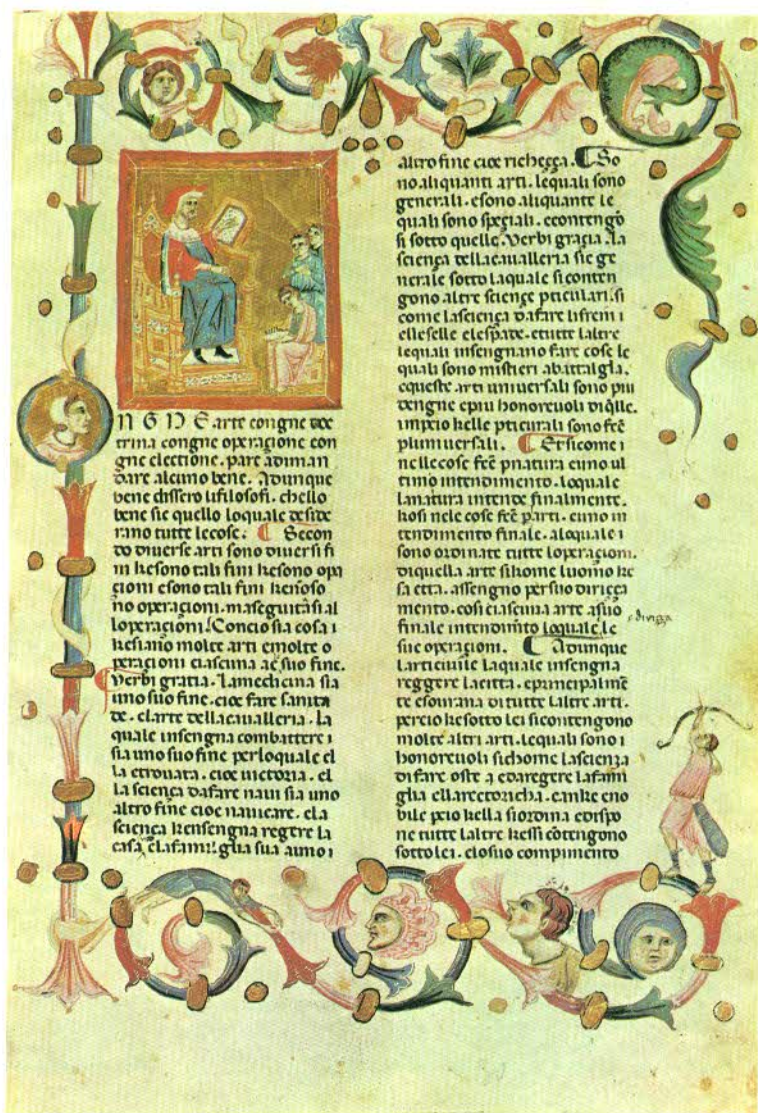 N G N E arte congne doc
trina congne operaçione con
gne electione. pare adiman
dare alcuno bene. Adunque
bene dissero li filosofi. chello
bene sie quello loquale deside
rano tutte le cose. Secon
do diuerse arti sono diuersi fi
ni kesono tali fini kesono opa
çioni esono tali fini kenoso
no operaçioni. maseguitāsi al
loperaçioni. Concio sia cosa i
kesiano molte arti emolte o
peraçioni ciascuna ae suo fine.
Verbi gratia. Lamedicina sia
uno suo fine. cioe fare sanita
de. elarte dellacaualleria. la
quale insengna combattere i
sia uno suo fine perloquale el
la etrouata. cioe uictoria. el
la sciença dafare naui sia uno
altro fine cioe nauicare. ela
sciença kensengna regere la
casa elafamiglia sua auno i
altro fine cioe richeçça. So
no aliquanti arti. lequali sono
generali. esono aliquante le
quali sono speçiali. econtengō
si sotto quelle. Verbi graçia. la
sciença dellacaualleria sie ge
nerale sotto laquale siconten
gono altre sciençe pticulari. si
come lasciença dafare lifreni i
elleselle elespade. etutte laltre
lequali insengnano fare cose le
quali sono mistieri abattalgla.
equeste arti uniuersali sono piu
dengne epiu honoreuoli diq̄lle.
impcio kelle pticurali sono fc̄e
pluniuersali. Et sicome i
nellecose fc̄e pnatura euno ul
timo intendimento. loquale
lanatura intende finalmente.
kosi nele cose fc̄e parti. euno in
tendimento finale. aloquale i
sono ordinate tutte loperaçioni.
diquella arte sikome luomo ke
saetta. assengno persuo diriçça
mento. cosi ciascuna arte asuo
finale intendimt̄o loquale le
diriçça
sue operaçioni. Adunque
larteciuile laquale insengna
reggere lacitta. eprincipalmē
te esourana di tutte laltre arti.
percio kesotto lei sicontengono
molte altri arti. lequali sono i
honoreuoli sichome lascienza
di fare oste a edaregere lafami
glia ellarectoricha. eanke eno
bile pcio kella siordina edispo
ne tutte laltre kessi cōtengono
sottolei. elosuo compimento